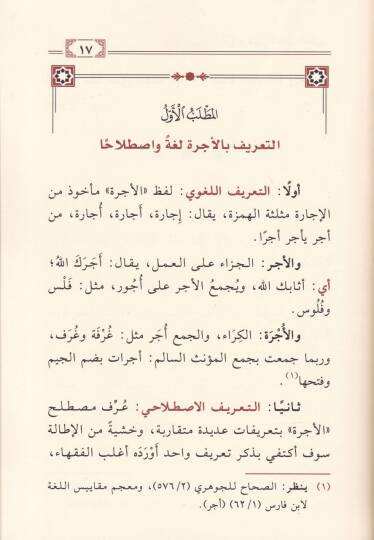 ١٧
المَطْلَبُ الْأَوَّلُ
التعريف بالأجرة لغةً واصطلاحًا
أولًا: التعريف اللغوي: لفظ «الأجرة» مأخوذ من
الإجارة مثلثة الهمزة، يقال: إجارة، أَجارة، أُجارة، من
أجر يأجر أجرًا.
والأجر: الجزاء على العمل، يقال: أَجَرَكَ اللهُ؛
أي: أثابك الله، ويُجمعُ الأجر على أُجُور، مثل: فَلْس
وفُلُوس.
والأُجْرَة: الكِرَاء، والجمع أُجَر مثل: غُرْفَة وغُرَف،
وربما جمعت بجمع المؤنث السالم: أجرات بضم الجيم
وفتحها(١).
ثانيًا: التعريف الاصطلاحي: عُرِّف مصطلح
«الأجرة» بتعريفات عديدة متقاربة، وخشيةً من الإطالة
سوف أكتفي بذكر تعريف واحد أَوْرَدَه أغلب الفقهاء،
(١) ينظر: الصحاح للجوهري (٥٧٦/٢)، ومعجم مقاييس اللغة
لابن فارس (٦٢/١) (أجر).